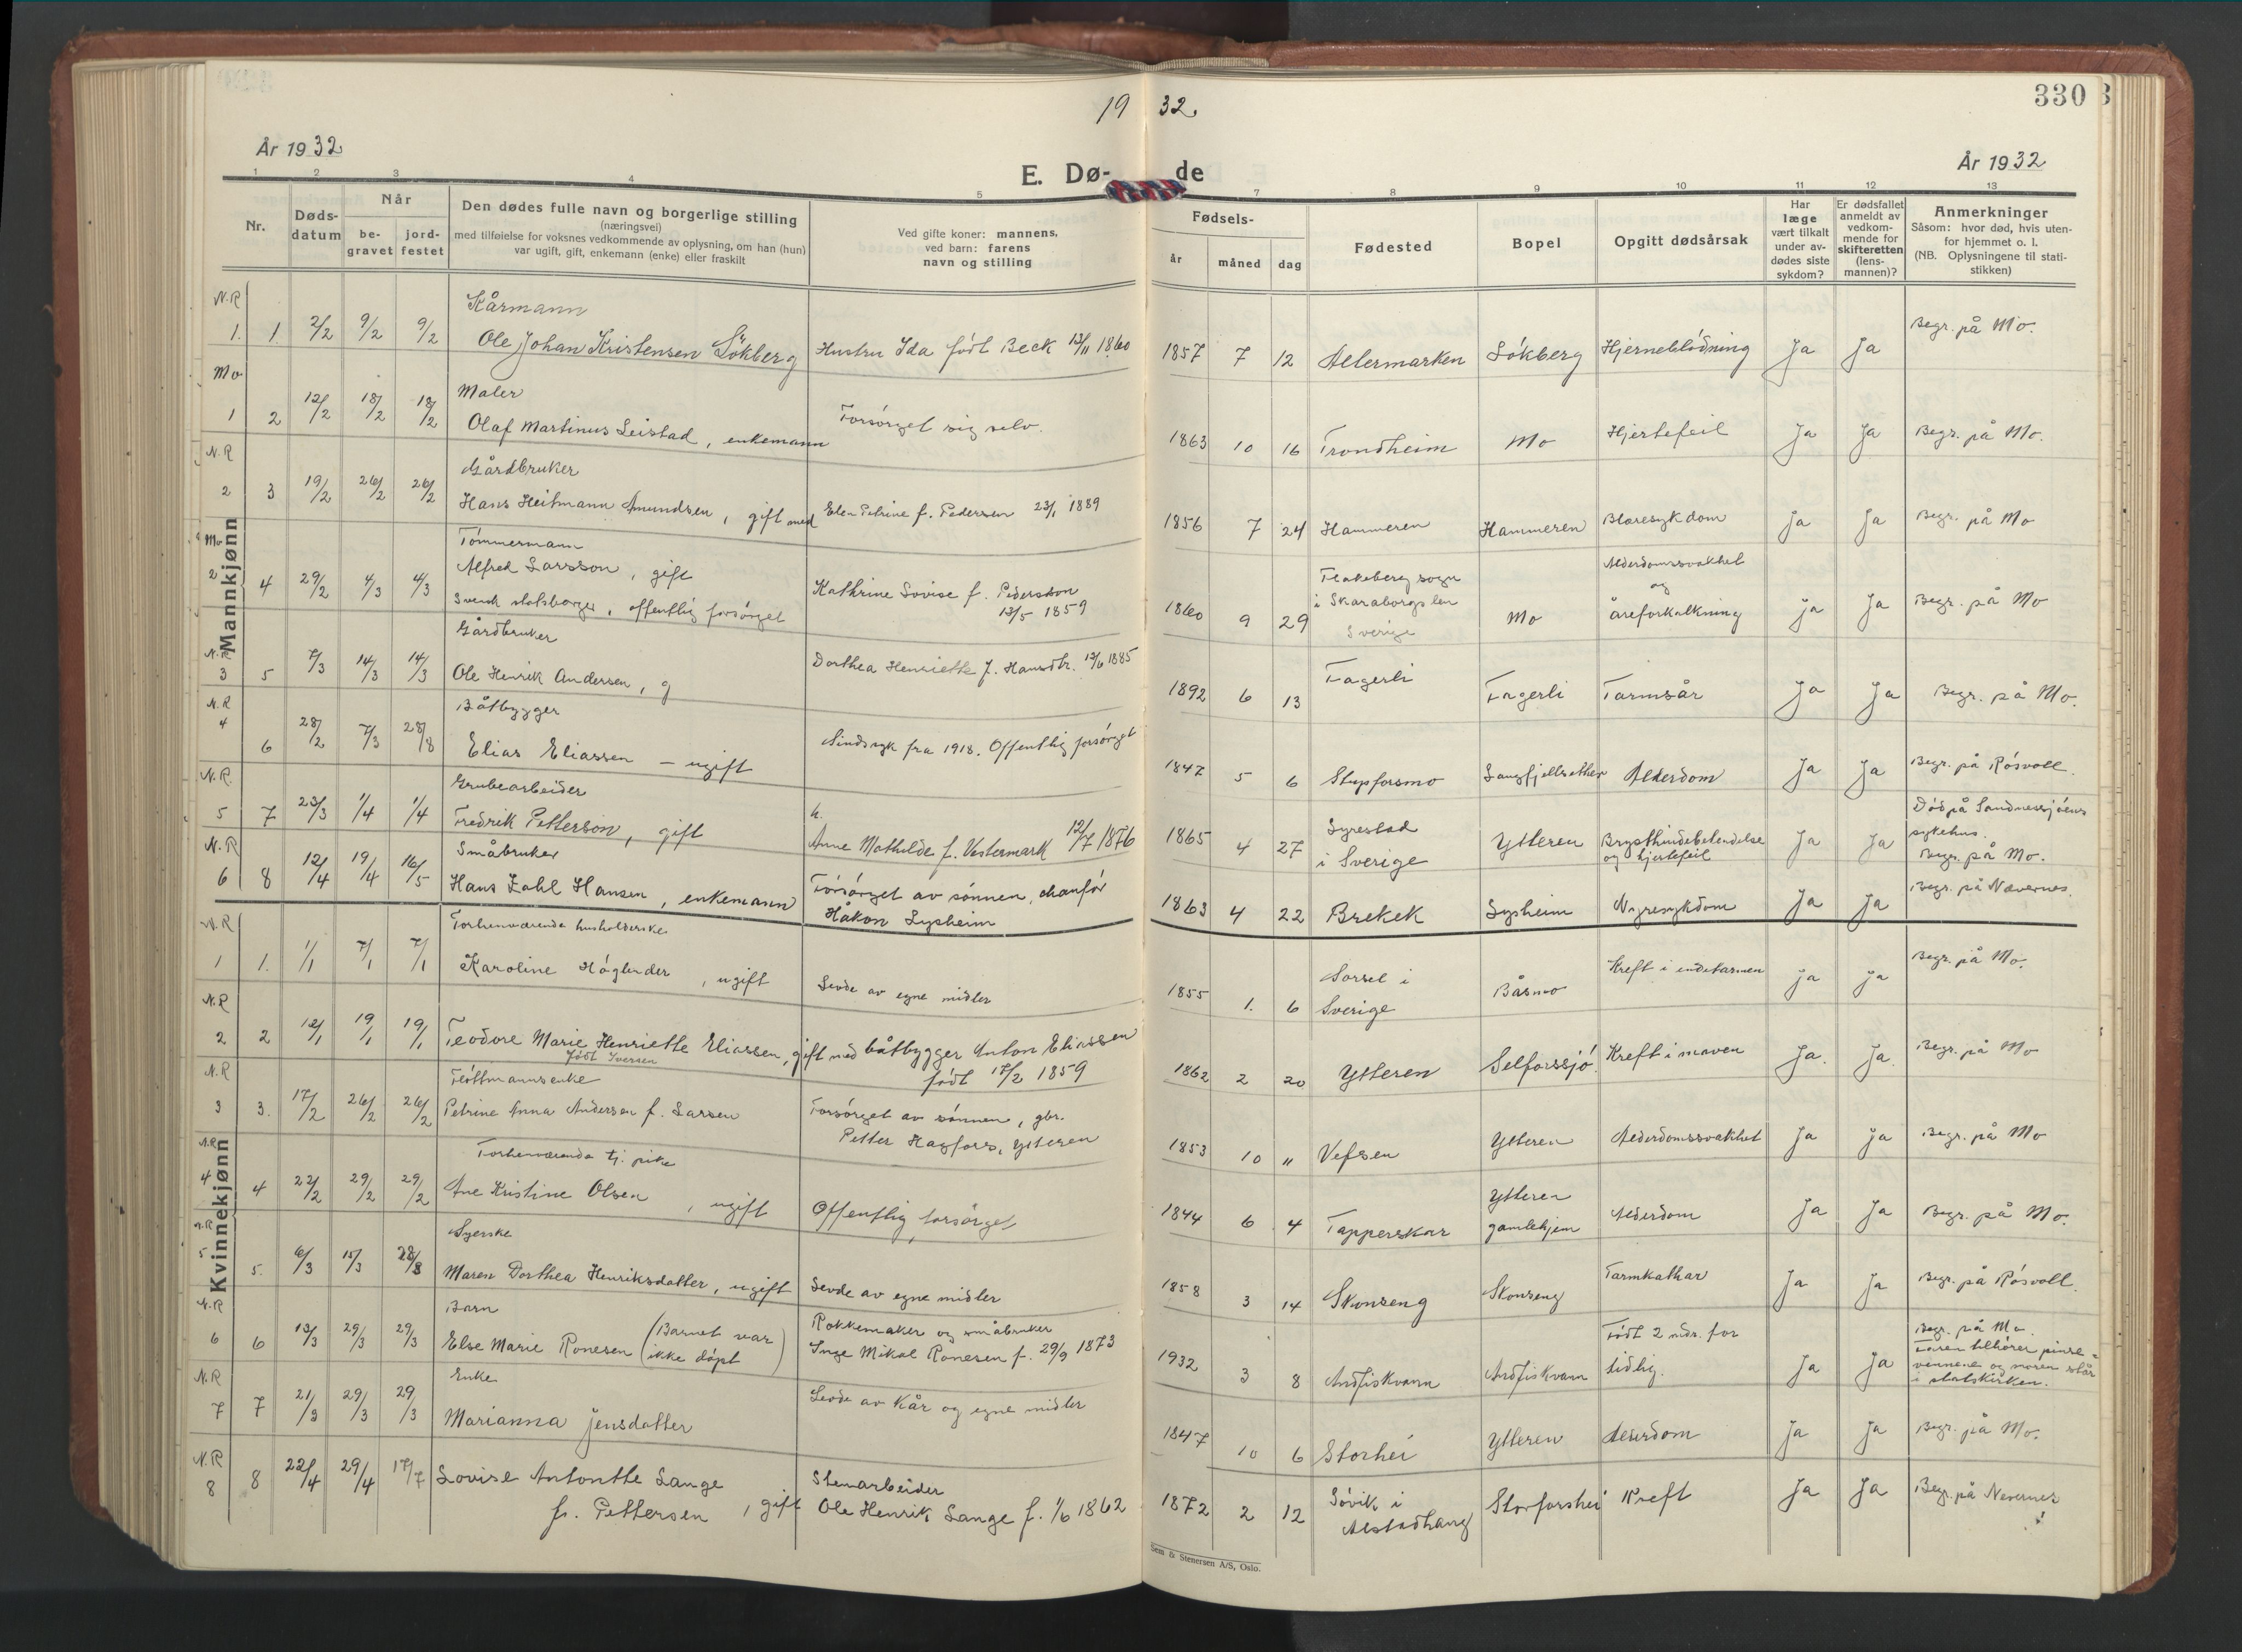 330
19 32.
År 1932
E. Dø- de
År 1932
1 2 3 4 5 7 8 9 10 11 12 13
Nr.
Døds-
datum
Når
be-
gravet
jord-
festet
Den dødes fulle navn og borgerlige stilling
(næringsvei)
med tilføielse for voksnes vedkommende av oplysning, om han (hun)
var ugift, gift, enkemann (enke) eller fraskilt
Ved gifte koner: mannens,
ved barn: farens
navn og stilling
Fødsels-
år måned dag
Fødested
Bopel
Opgitt dødsårsak
Har
læge
vært tilkalt
under av-
dødes siste
sykdom?
Er dødsfallet
anmeldt av
vedkom-
mende for
skifteretten
(lens-
mannen)?
Anmerkninger
Såsom: hvor død, hvis uten-
for hjemmet o. l.
(NB. Oplysningene til stati-
stikken)
Mannkjønn
N.R Kårmann
1. 1 2/2 9/2 9/2 Ole Johan Kristensen Sökberg Hustru Ida født Beck 13/11 1860 1857 7 12 Altermarken Sökberg Hjerneblödning Ja Ja Begr. på Mo.
Mo Maler
1 2 12/2 18/2 18/2 Olaf Martinus Leistad, enkemann Forsörget sig selv. 1863 10 16 Trondheim Mo Hjertefeil Ja Ja Begr. på Mo.
N.R Gårdbruker
2 3 19/2 26/2 26/2 Hans Heitmann Amundsen, gift med Elen Petrine f. Pedersen 23/1 1889 1856 7 24 Hammeren Hammeren Blæresykdom Ja Ja Begr. på Mo
Mo Tömmermann
2 4 29/2 4/3 4/3 Alfred Larsson, gift
Svensk statsborger, offentlig forsörget
Kathrine Lovise f. Pedersdon
13/5 1859
1860 9 29 Flakeberg sogn
i Skaraborgs len
Sverige
Mo
Alderdomssvakhet
og
åreforkalkning
Ja Ja Begr. på Mo
N.R Gårdbruker
3 5 7/3 14/3 14/3 Ole Henrik Andersen, g Dorthea Henriette f. Hansdtr. 12/6 1885 1892 6 13 Fagerli Fagerli Tarmsår Ja Ja Begr. på Mo.
N.R Båtbygger
4 6 28/2 7/3 28/8 Elias Eliassen – ugift Sindsyk fra 1918. Offentlig forsörget 1847 5 6 Stupforsmo Langfjellsether Alderdom Ja Ja Begr. på Rösvoll.
N.R. Grubearbeider
5 7 23/3 1/4 1/4 Fredrik Petterson, gift h.
Anne Mathilde f. Vestermark 12/7 1876 1865 4 27 Syrestad
i Sverige
Ytteren Brysthindebetendelse
og hjertefeil
Ja Ja Död på Sandnessjöens
sykehus.
Begr. på Mo.
N.R Småbruker
6 8 12/4 19/4 16/5 Hans Zahl Hansen, enkemann Forsörget av sönnen, chauför
Håkon Lysheim
1863 4 22 Brekek Lysheim Nyresykdom Ja Ja Begr. på Nævernes.
Kvinnekjønn
N.R Forhenværende husholderske
1 1. 1/1 7/1 7/1 Karoline Höglunder, ugift Levde av egne midler 1855 1. 6 Sorsel i
Sverige
Båsmo Kreft i endetarmen Ja Ja Begr. på Mo.
N.R
2 2 12/1 19/1 19/1 Teodore Marie Henriette Eliassen, gift med båtbygger Anton Eliassen
født Iversen født 17/2 1859
1862 2 20 Ytteren Selforssjö. Kreft i maven Ja. Ja. Begr. på Mo
N.R Flöttmannsenke
3 3. 17/2 26/2 26/2 Petrine Anna Andersen f. Larsen Forsörget av sönnen, gbr.
Petter Hagfors, Ytteren
1853 10 " Vefsen Ytteren Alderdomssvakhet Ja Ja Begr. på Mo
N.R Forhenværende tj. pike
4 4 22/2 29/2 29/2 Ane Kristine Olsen, ugift Offentlig forsörget 1844 6 4 Tapperskar Ytteren
gamlehjem
Alderdom Ja Ja Begr. på Mo.
N.R Syerske
5 5. 6/3 15/3 28/8 Maren Dorthea Henriksdatter, ugift Levde av egne midler 1858 3 14 Skonseng Skonseng Tarmkathar Ja Ja Begr. på Rösvoll.
N.R Barn
6 6 13/3 29/3 29/3 Else Marie Ronesen (Barnet var
ikke döpt)
Rokkemaker og småbruker
Inge Mikal Ronesen f. 29/9 1873
1932 3 8 Andfiskvann Andfiskvann Födt 2 mdr. for
tidlig.
Ja Ja Begr. på Mo.
Faren tilhörer pinse-
vennene og moren står
i statskirken.
N.R Enke
7 7 21/3 29/3 29/3 Marianna Jensdatter Levde av kår og egne midler 1847 10 6 Storhei Ytteren Alderdom Ja Ja Begr. på Mo.
N.R
8 8 22/4 29/4 17/7 Lovise Antonthe Lange
f. Pettersen, gift
Stenarbeider
Ole Henrik Lange f. 1/6 1862
1872 2 12 Sövik i
Alstadhaug
Storforshei Kreft Ja Ja Begr. på Nevernes
Sem & Stenersen A/S, Oslo.